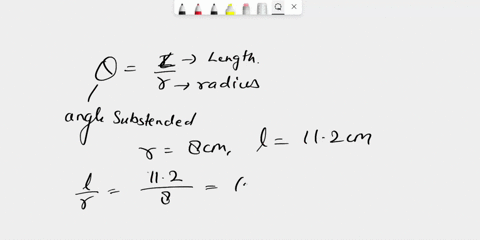 θ = l/r → Length.
→ radius
angle Substended
r = 8cm, l = 11.2cm
l/r = 11.2/8 = (.